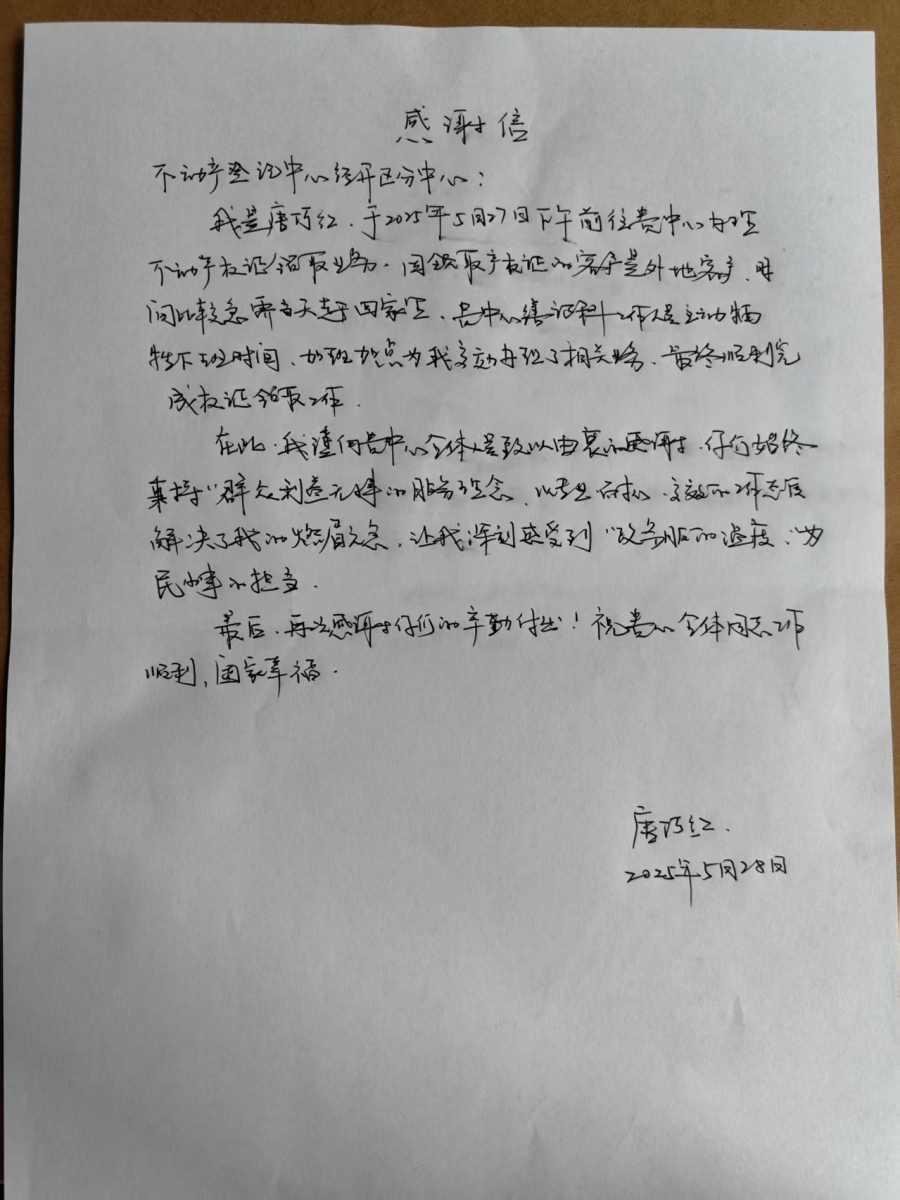 感谢信
不动产登记中心经开区分中心：
我是唐巧红，于2025年5月27日下午前往贵中心办理
不动产权证领取业务。因领取产权证的客户是外地客户，时
间比较急需当天赶回家里，贵中心缮证科工作人员主动牺
牲下班时间，加班加点为我高效办理了相关业务，最终顺利完
成权证领取工作。
在此，我谨向贵中心全体人员致以由衷的感谢，你们始终
秉持"群众利益无小事"的服务理念，以专业、高效的工作态度
解决了我的燃眉之急，让我深刻感受到"政务服务的温度"，"为
民办事的担当。
最后，再次感谢你们的辛勤付出！祝贵中心全体同志工作
顺利，阖家幸福。
唐巧红.
2025年5月28日